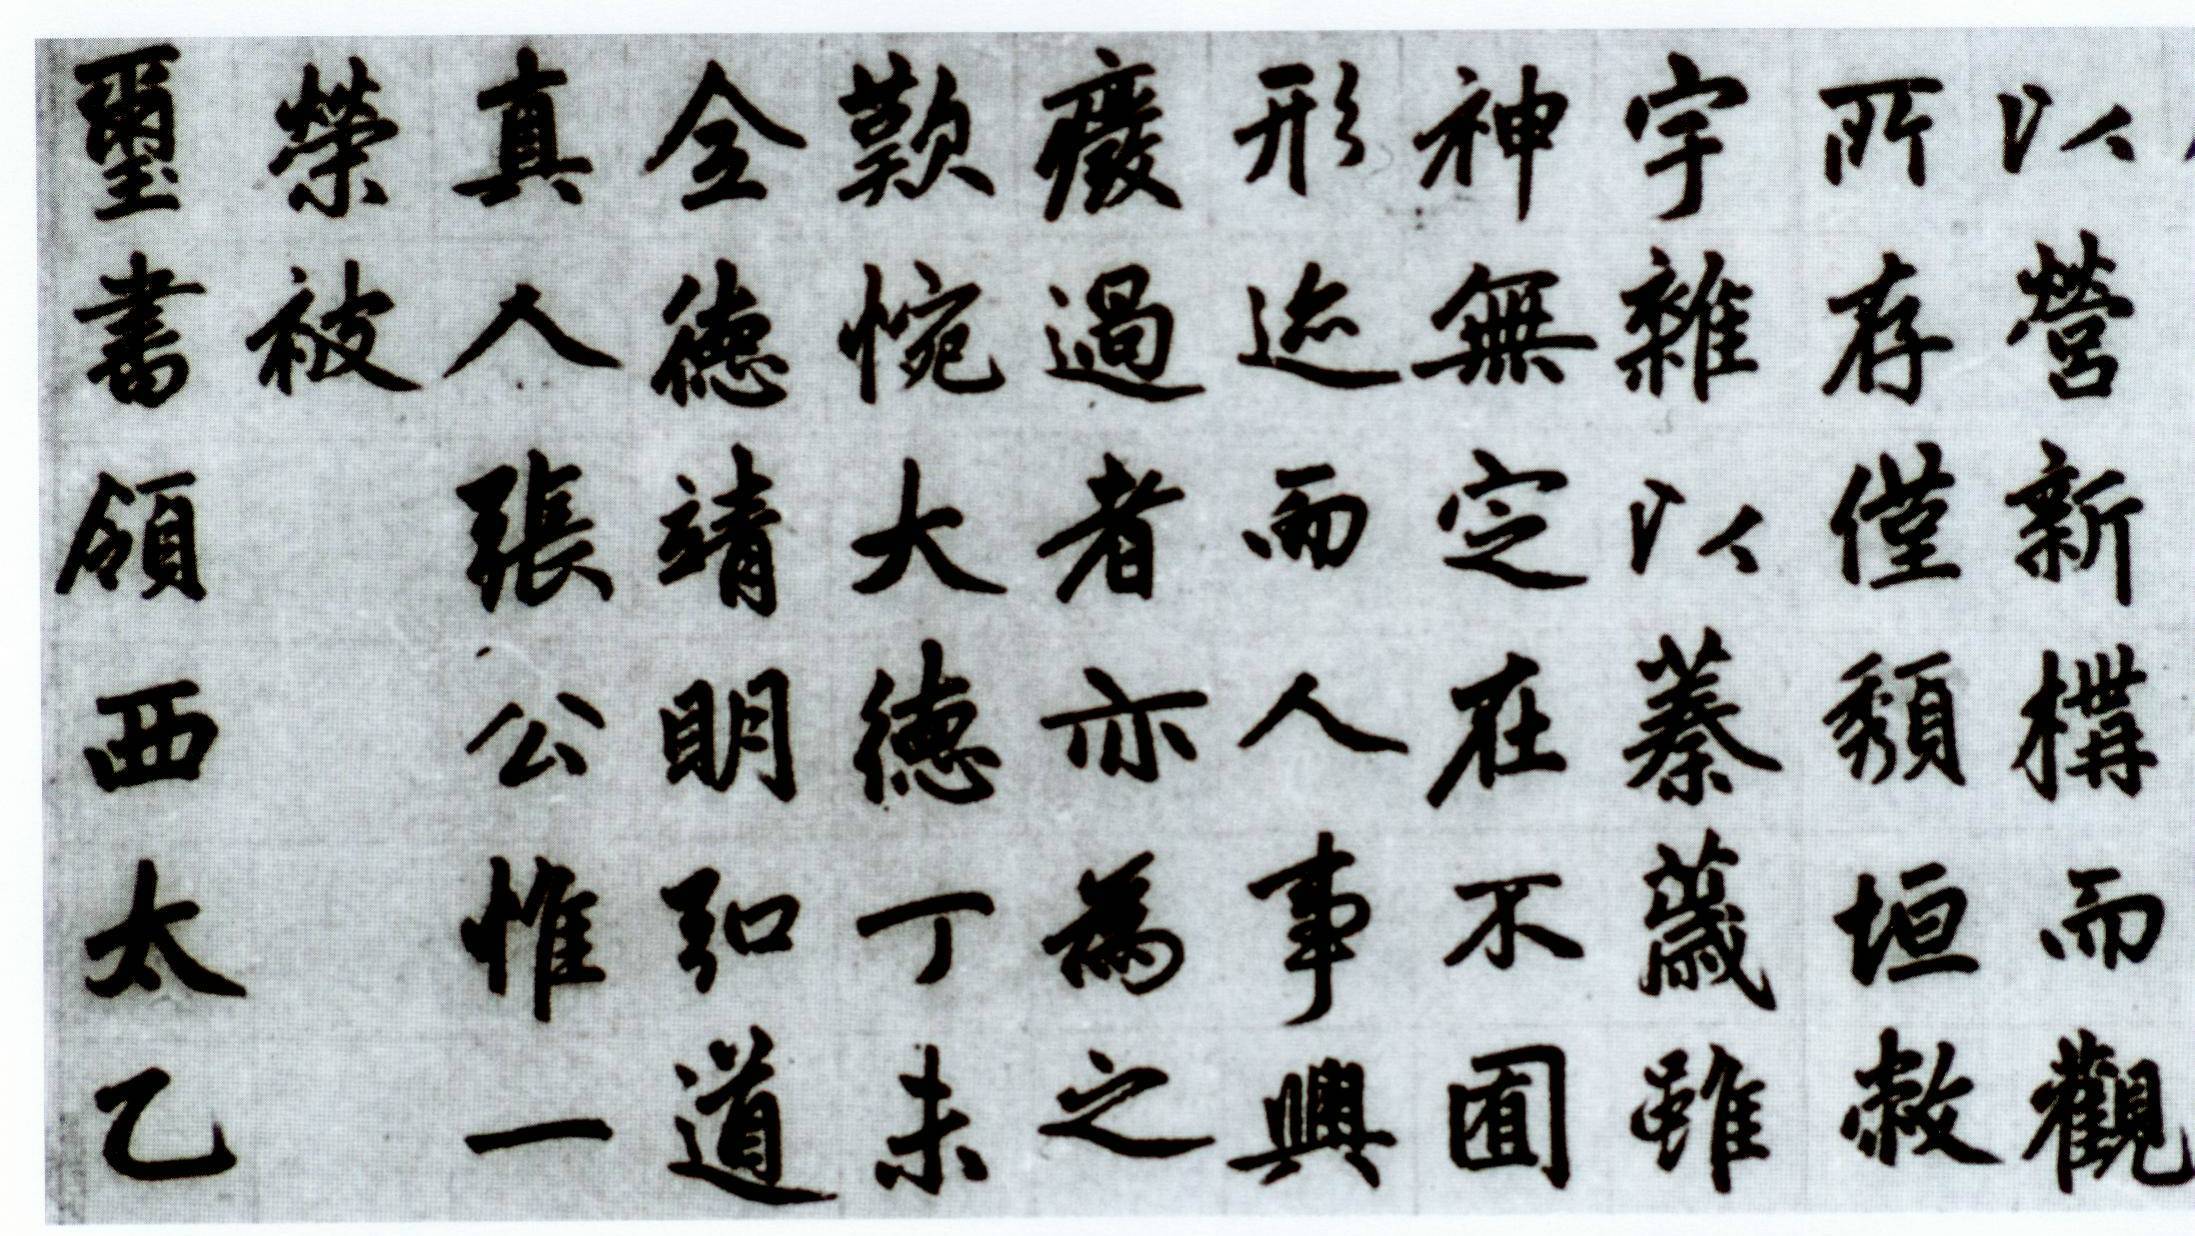 以營新構而觀
所存僅頹垣敝
宇雜以蓁薉雖
神無定在不囿
形迹而人事興
癈過者亦為之
歎惋大德丁未
全德靖明弘道
真人張公惟一
榮被
璽書領西太乙